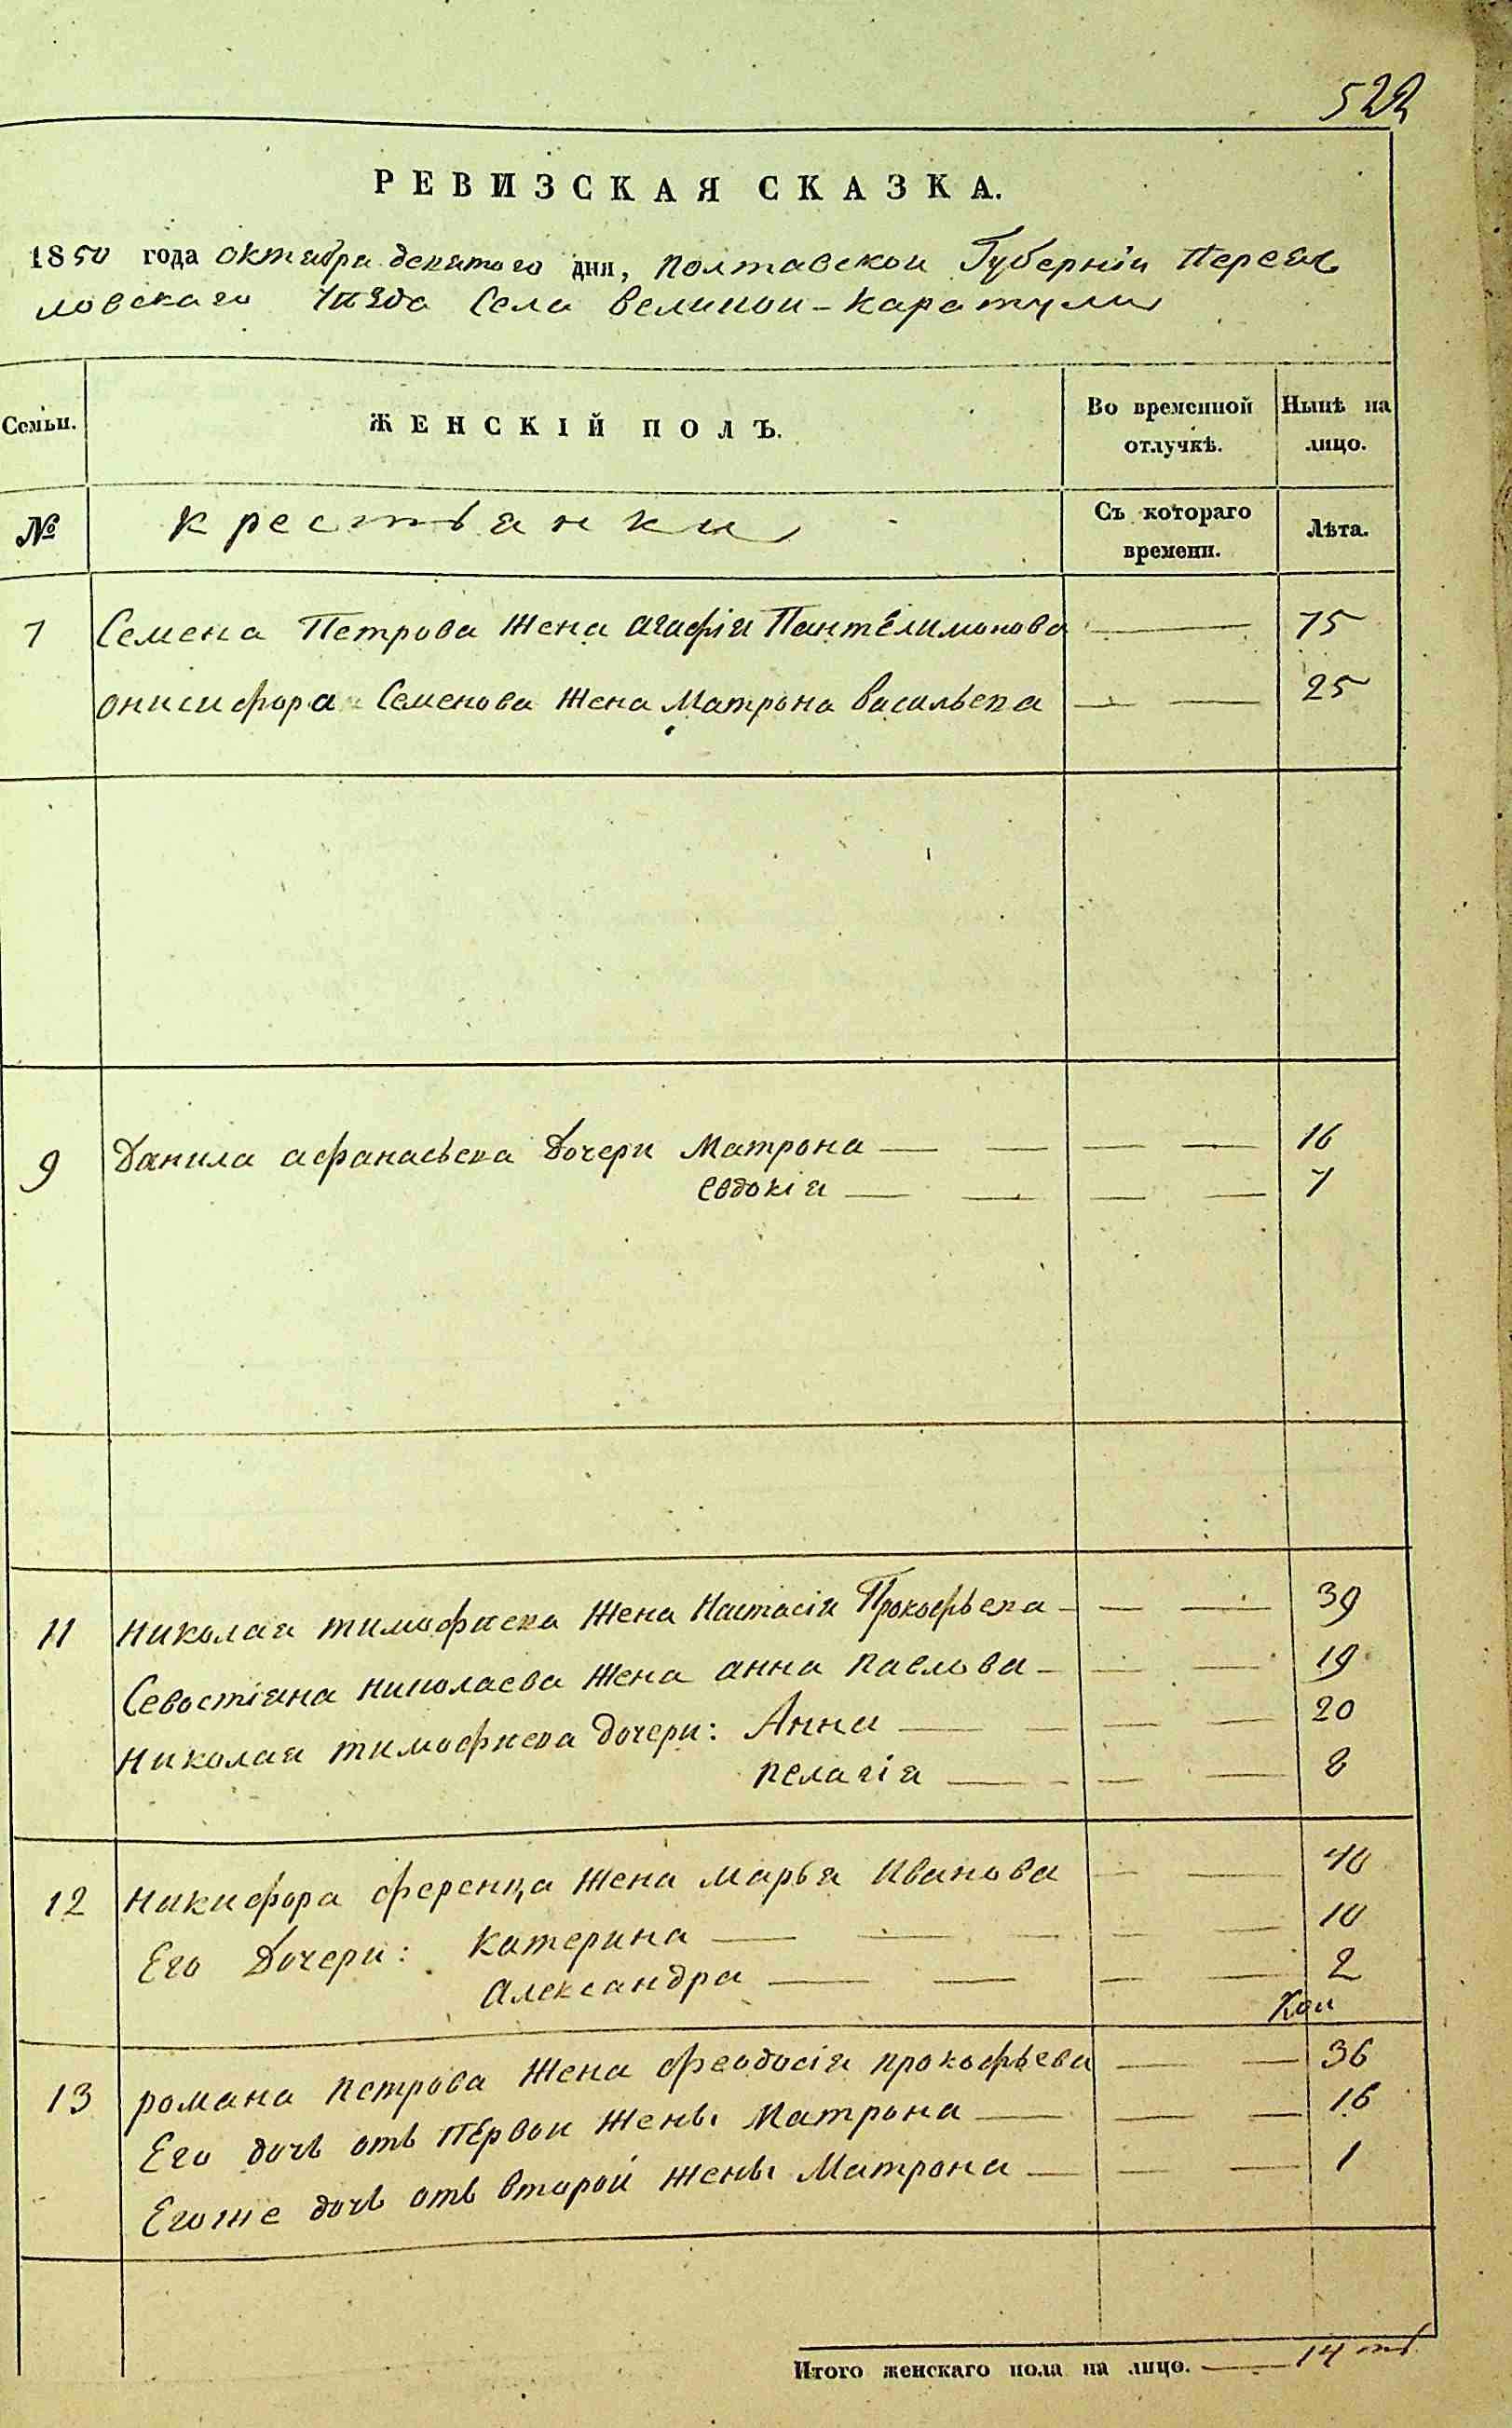 522
РЕВИЗСКАЯ СКАЗКА.
1850 года октября девятого дня, Полтавской Губерніи Переяс
ловского уѣзда Села великой-каратули
Семьи. ЖЕНСКІЙ ПОЛЪ. Во временной отлучкѣ. Нынѣ на лицо.
№ крестьянки Съ котораго времени. Лѣта.
7 Семена Петрова жена агафія Пантелимонова — 75
онисифора Семенова жена Матрона васильева — — 25
9 Данила афанасьева Дочери Матрона — — — — 16
Евдокія — — — — 7
11 николая тимофиева жена Настасія Прокофьева — — — 39
Севостіяна николаева жена анна павлова — — — 19
николая тимофиева дочери: Анна — — — — 20
пелагія — — — — 8
12 никифора ференца жена марья иванова — — 40
Его Дочери: катерина — — — — — 10
александра — — — — 2
13 романа петрова жена феодосія прокофьева — — 36
Его дочь отъ первои жены Матрона — — — 16
Егоже дочь отъ второй жены Матрона — — — 1
Итого женскаго пола на лицо. — 14